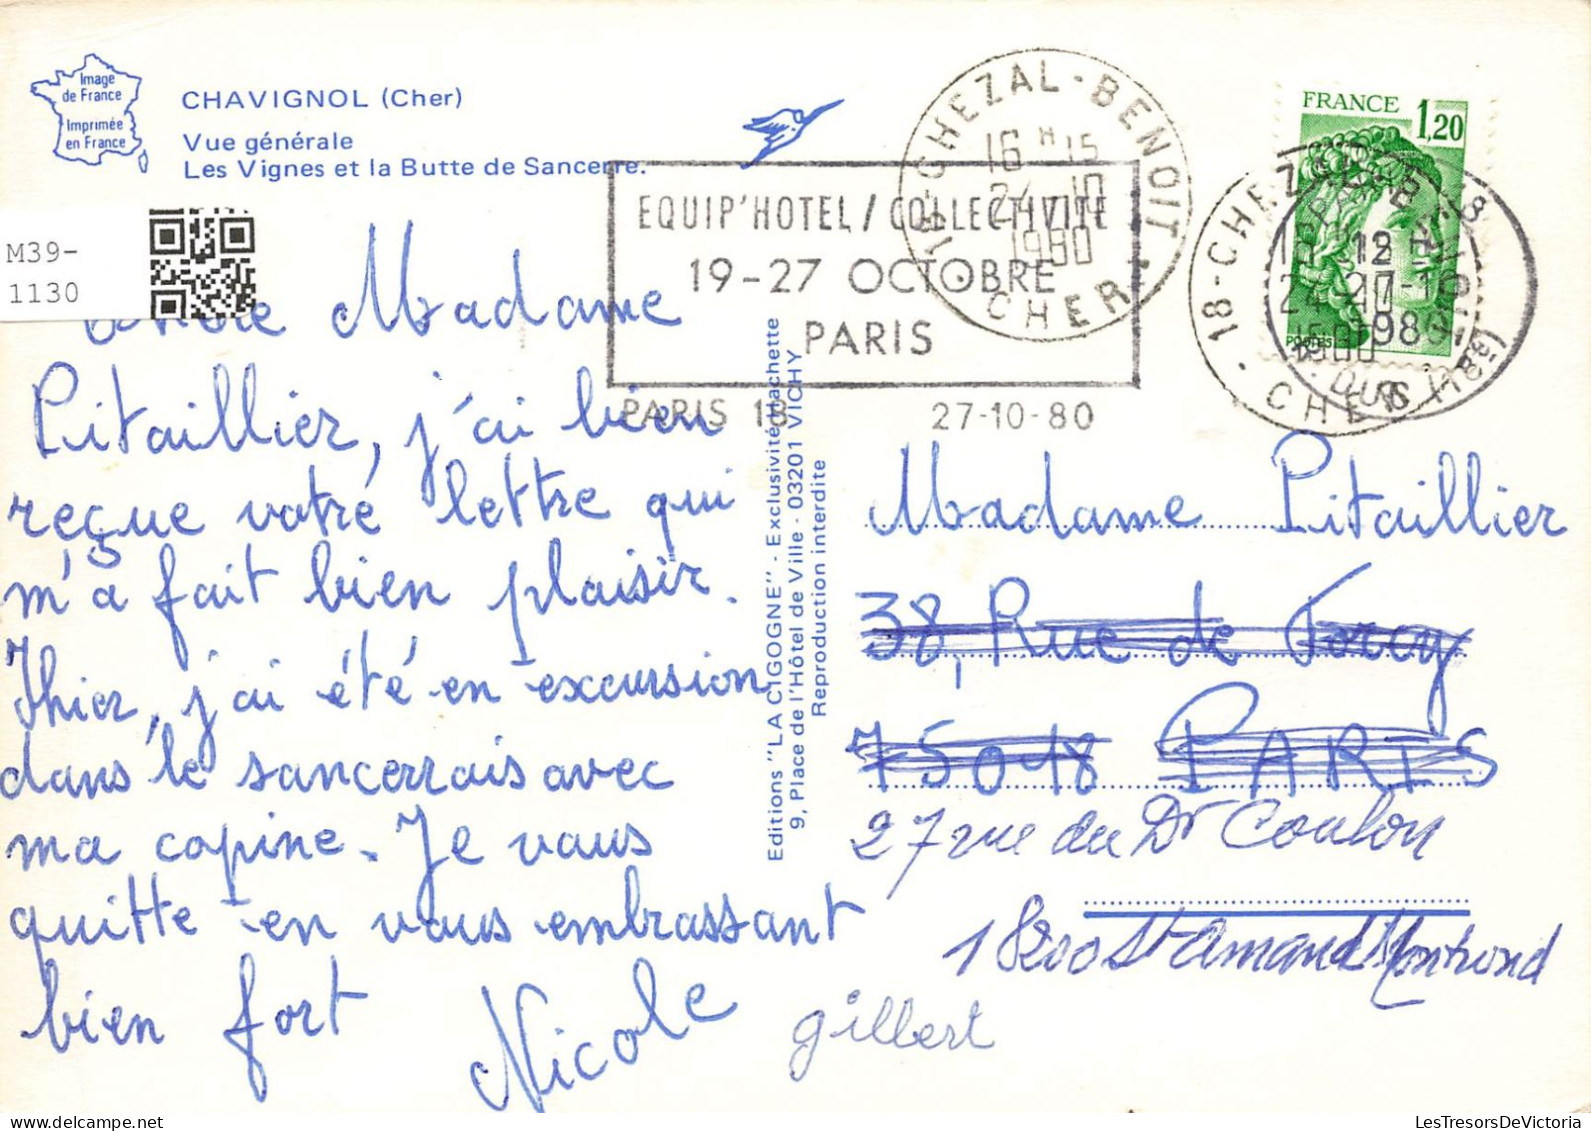 Image
de France
Imprimée
en France
CHAVIGNOL (Cher)
Vue générale
Les Vignes et la Butte de Sancerre.
M39-
1130
18-CHEZAL-BENOIT
16 H 15
24-10
1980
CHER
EQUIP'HOTEL / COLLECTIVITE
19-27 OCTOBRE
PARIS
PARIS 18
27-10-80
FRANCE 1,20
POSTES
18-CHEZAL-BENOIT
CHER
Madame
Pitaillier, j'ai bien
reçue votre lettre qui
m'a fait bien plaisir.
Ihier, j'ai été en excursion
dans le sancerrais avec
ma copine. Je vous
quitte en vous embrassant
bien fort
Nicole
Editions "LA CIGOGNE" - Exclusivité Hachette
9, Place de l'Hôtel de Ville - 03201 VICHY
Reproduction interdite
Madame Pitaillier
38, Rue de Torcy
75018 PARIS
27 rue du Dr Coulon
18200 St Amand Montrond
gilbert
LesTresorsDeVictoria.com